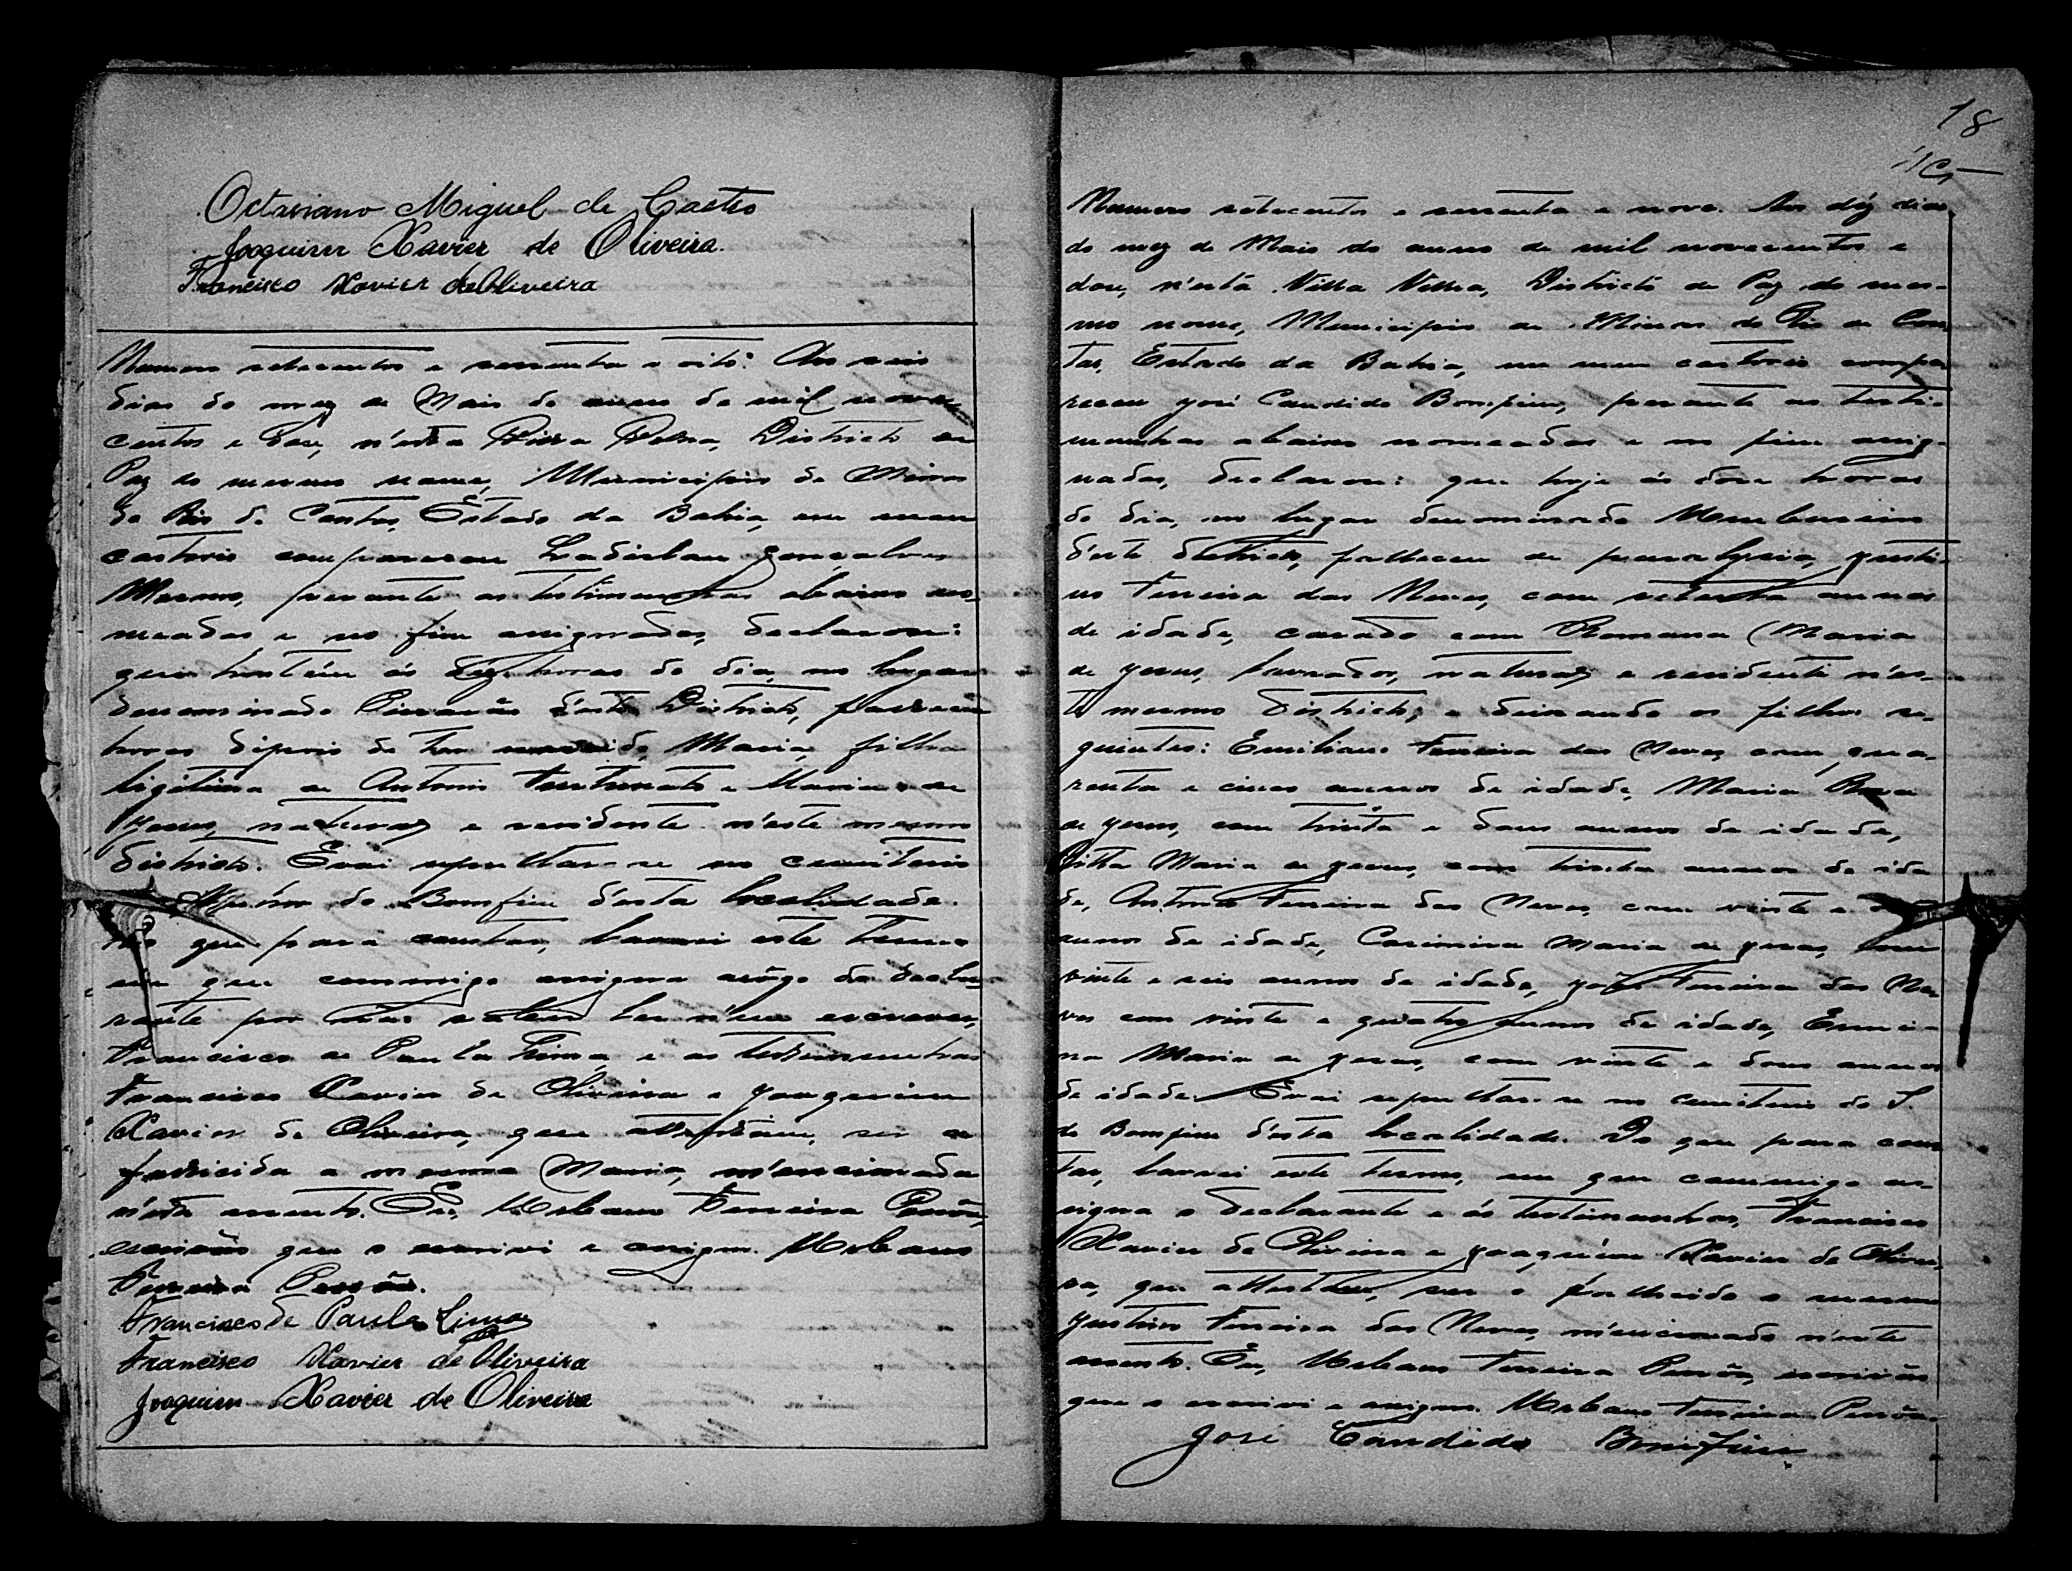 Octaviano Miguel de Castro
Joaquim Xavier de Oliveira.
Francisco Xavier de Oliveira
Numero setecentos e sessenta e oito. Aos seis
dias do mez de Maio do anno de mil nove-
centos e dous, n'esta Villa Velha, Districto de
Paz do mesmo nome, Municipio de Minas
do Rio de Contas, Estado da Bahia, em meu
cartorio compareceu Ladislau Gonçalves
perante as testimunhas abaixo no-
meadas e no fim assignadas, declarou:
que hontem ás dez horas do dia, no lugar
denominado d'este Districto, falleceu
horas dipois de ter nascido, Maria, filha
ligitima de Antonio Fortunato e Maria de
Jesus, natural e residente n'este mesmo
districto. E vai sepultar-se no cemiterio
do Bomfim d'esta localidade.
que para constar, lavrei este termo
em que commigo assigna arôgo do decla-
rante por não saber ler n'em escrever,
Francisco de Paula Lima, e as testimunhas
Francisco Xavier de Oliveira e Joaquim
Xavier de Oliveira, que attestam, ser a
fallicida a mesma Maria, m'encionada
n'este assento. Eu, Urbano Ferreira Pessôa,
escrivão que o escrivi e assigno. Urbano
Ferreira Pessôa.
Francisco de Paula Lima
Francisco Xavier de Oliveira
Joaquim Xavier de Oliveira
18
Numero setecentos e sessenta e nove. Aos déz dias
do mez de Maio do anno de mil novecentos e
dous, n'esta Villa Velha, Districto de Paz do mes-
mo nome, Municipio de Minas do Rio de Con-
tas, Estado da Bahia, em meu cartorio compa-
receu José Candido Bomfim, perante as testi-
munhas abaixo nomeadas e no fim assig-
nadas, declarou: que hoje ás dose horas
do dia, no lugar denominado
d'este districto, falleceu de paralysia, Justi-
no Ferreira das Neves, com setenta annos
de idade, casado com Romana Maria
de Jesus, lavrador, natural e residente n'es-
te mesmo Districto, e deixando os filhos se-
guintes: Emiliano Ferreira das Neves, com qua-
renta e cinco annos de idade, Maria Rosa
de Jesus, com trinta e dous annos de idade,
Ritta Maria de Jesus, com trinta annos de ida
de, Antonio Ferreira das Neves, com vinte e
annos de idade, Casimira Maria de Jesus, com
vinte e seis annos de idade, José Ferreira das Ne-
ves com vinte e quatro annos de idade,
Maria de Jesus, com vinte e dous annos
de idade. E vai sepultar-se no cemiterio do S.
do Bomfim d'esta localidade. Do que para cons-
tar, lavrei este termo, em que commigo as-
signa o declarante e ás testimunhas, Francisco
Xavier de Oliveira e Joaquim Xavier de Olivei-
ra, que attestam, ser o fallicido o mesmo
Justino Ferreira das Neves, m'encionado n'este
assento. Eu, Urbano Ferreira Pessôa, escrivão
que o escrivi e assigno. Urbano Ferreira Pessôa.
José Candido Bomfim